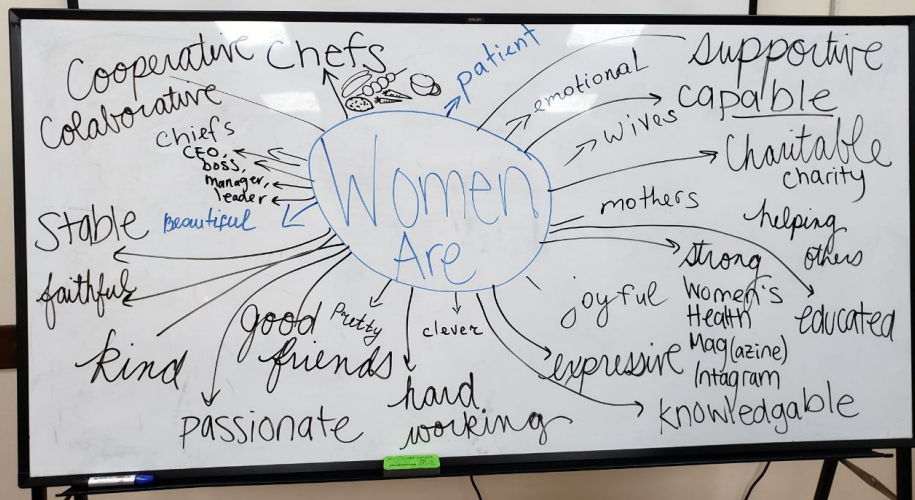 Women
Are
Cooperative
Colaborative
Chefs
patient
emotional
wives
supportive
capable
Charitable
charity
helping
others
mothers
strong
Women's
Health
Mag(azine)
Intagram
educated
joyful
expressive
knowledgable
clever
hard
working
Pretty
good
friends
passionate
kind
faithful
Stable
Beautiful
Chiefs
CEO,
boss,
manager,
leader